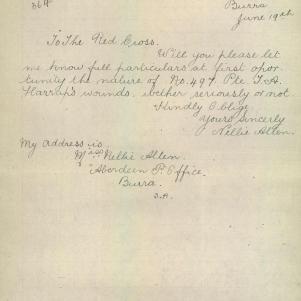 Burra
364
June 19th
To The Red Cross.
Will you please let
me know full particulars at first opor-
tunity the nature of No. 497 Pte. T. A.
Harrap's wounds, wether seriously or not
Kindly Oblige
Yours Sincerely
Nellie Allen.
My address is
Nellie Allen.
Aberdeen P. Office.
Burra.
S.A.